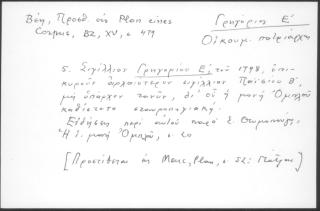 Βέη, Προσθ. εἰς Plan eines
Corpus, BZ, XV, σ 479
Γρηγόριος Ε΄
Οἰκουμ. πατριάρχης
5. Σιγίλλιον Γρηγορίου Ε΄, τοῦ 1798, ἐπι-
κυροῦν ἀρχαιότερον σιγίλλιον Παϊσίου Β΄,
μὴ ὑπάρχον πανῦν, δι' οὗ ἡ μονὴ Ὀμπλοῦ
καθίστατο σταυροπηγιακή.
Εἰδήσεις περὶ αὐτοῦ παρὰ
Ἡ ἱ. μονὴ Ὀμπλοῦ, σ. 20
[Προστίθεται εἰς Marc, Plan, σ. 52: